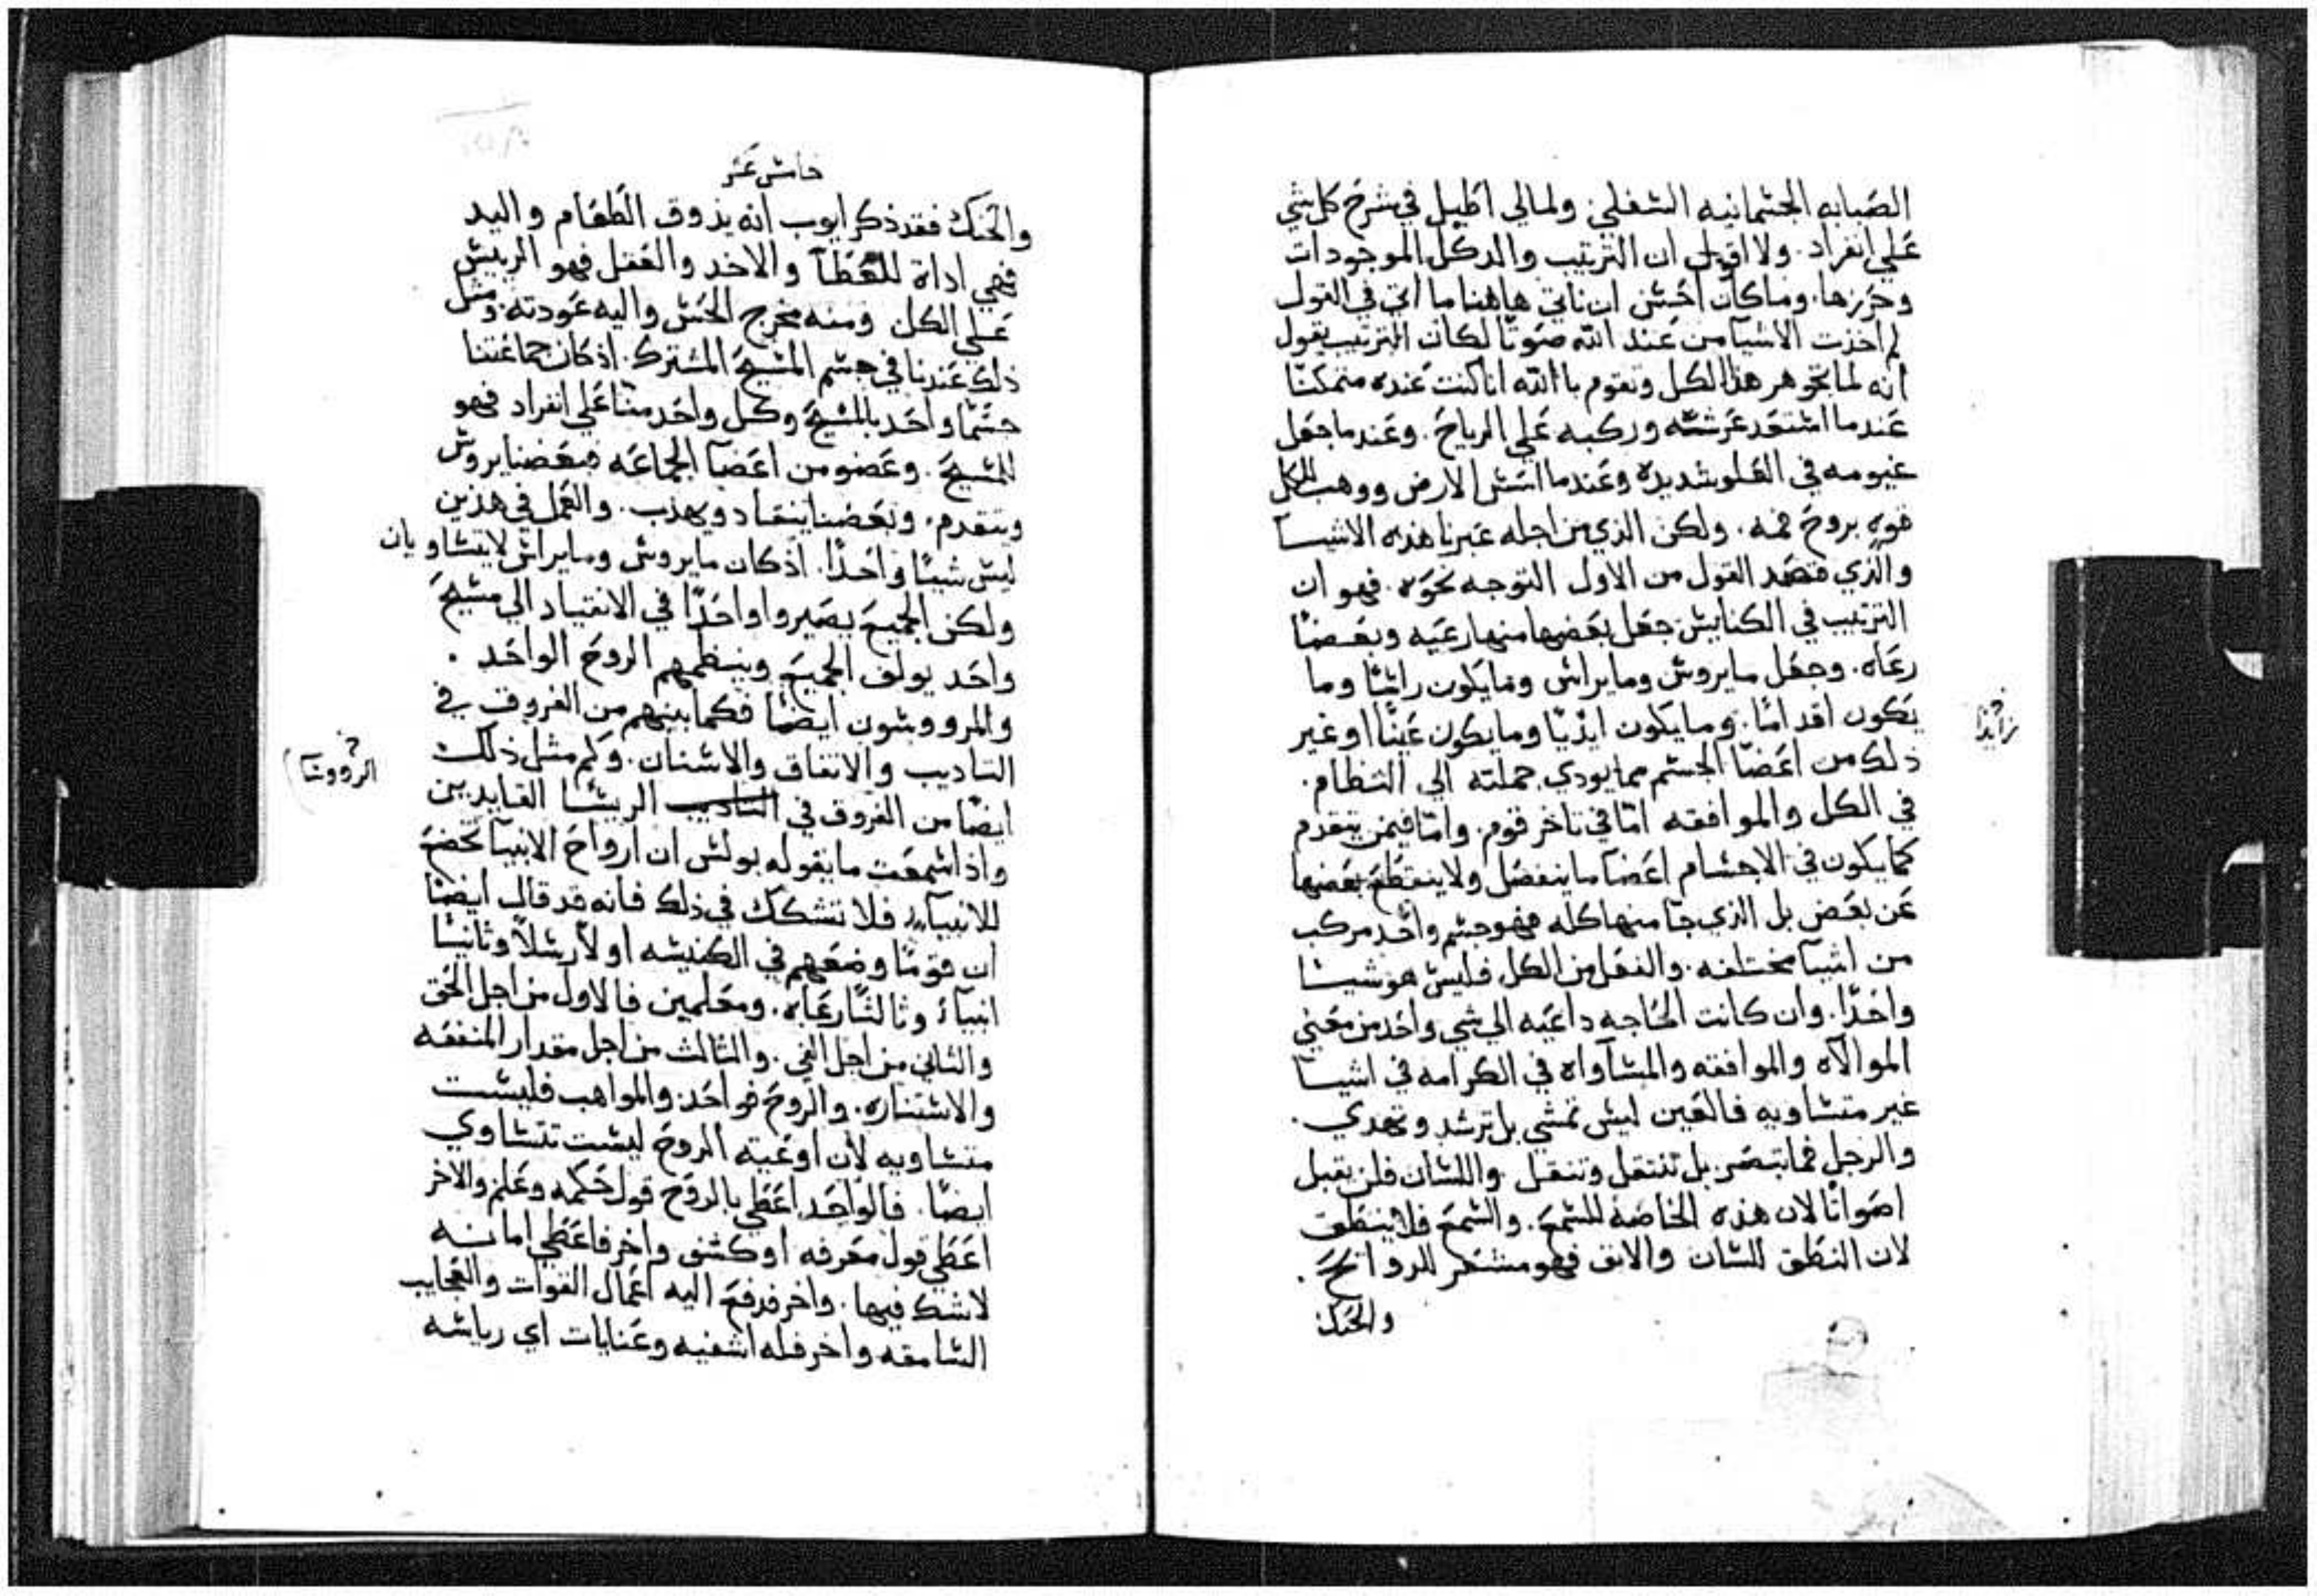 الصبابه الجسمانيه السفلي: ولمالي اطيل في شرح كل شي
علي انفراد. ولا اقول ان الترتيب والد كل الموجودات
وحرزها. وما كان احسن ان ناتي هاهنا ما اتي في القول
لم اخذت الاشيا من عند الله صوتًا لكان الترتيب يقول
انه لما تجوهر هذا الكل وتقوم باالله انا كنت عنده متمكنًا
عندما استعد عرشه وركبه علي الرياح. وعندما جعل
غيومه في العلو شديده وعندما اسس الارض ووهب للكل
قوه بروح فمه. ولكن الذي من اجله عبرنا هذه الاشيا
والذي قصد القول من الاول التوجه نحوه. فهو ان
الترتيب في الكنايس جعل بعضها منها رعيه وبعضًا
رعاه. وجعل ما يروس وما يراس وما يكون راسًا وما
يكون اقدامًا. وما يكون ايديًا وما يكون عينًا او غير
ذلك من اعضا الجسم مما يودي جملته الي النظام.
في الكل والموافقه امّا في تاخر قوم. وامّا فيمن يتقدم
كما يكون في الاجسام اعضا ما ينفصل ولا ينقطع بعضها
عن بعض بل الذي جا منها كله فهو جسم واحد مركب
من اشيا مختلفه. والفعل من الكل فليس هو شيًا
واحدًا. وان كانت الحاجه داعيه الي شي واحد من معني
الموالاه والموافقه والمساواه في الكرامه في اشيا
غير متساويه فالعين ليس تمشي بل ترشد وتهدي.
والرجل فما تبصر بل تنتقل وتنقل واللسان فلن يقبل
اصواتًا لان هذه الخاصه للسمع. والسمع فلا ينطق
لان النطق للسان والانف فهو مستخبر للروائح.
والحنك
خامس عشر
والحنك فقد ذكر ايوب انه يذوق الطعام واليد
فهي اداة للعطا والاخد والعقل فهو الرييس
علي الكل ومنه مخرج الحس واليه عودته. ومثل
ذلك عندنا في جسم المسيح المشترك. اذ كان جماعتنا
جسمًا واحد بالمسيح وكل واحد منا علي انفراد فهو
للمسيح. وعضو من اعضا الجماعه فبعضنا يروس
ويتقدم. وبعضنا ينقاد ويهذب. والعمل في هذين
ليس شيًا واحدًا. اذ كان ما يروس وما يراس لا يتساويان
ولكن الجميع يصيروا واحدًا في الانقياد الي مسيح
واحد يولف الجميع وينظمهم الروح الواحد.
والمرووسون ايضًا فكما بينهم من الفروق في
التاديب والاتفاق والاسنان. وكم مثل ذلك
الرووسا
ايضًا من الفروق في التاديب الريسا القايدين
واذا سمعت ما يقوله بولس ان ارواح الانبيا تخضع
للانبيا فلا تشكك في ذلك فانه قد قال ايضًا
ان قومًا وضعهم في الكنيسه اولًا رسلًا وثانيًا
انبيا وثالثًا رعاه. ومعلمين فالاول من اجل الحق
والثاني من اجل الفي. والثالث من اجل مقدار المنفعه
والاستناره. والروح فواحد. والمواهب فليست
متساويه لان اوعيته الروح ليست تتساوي
ايضًا. فالواحد اعطي بالروح قول حكمه وعلم والاخر
اعطي قول معرفه او كشف واخر فاعطي امانه
لا شك فيها. واخر فدفع اليه اعمال القوات والعجايب
السامقه واخر فله اشفيه وعنايات اي رياسه